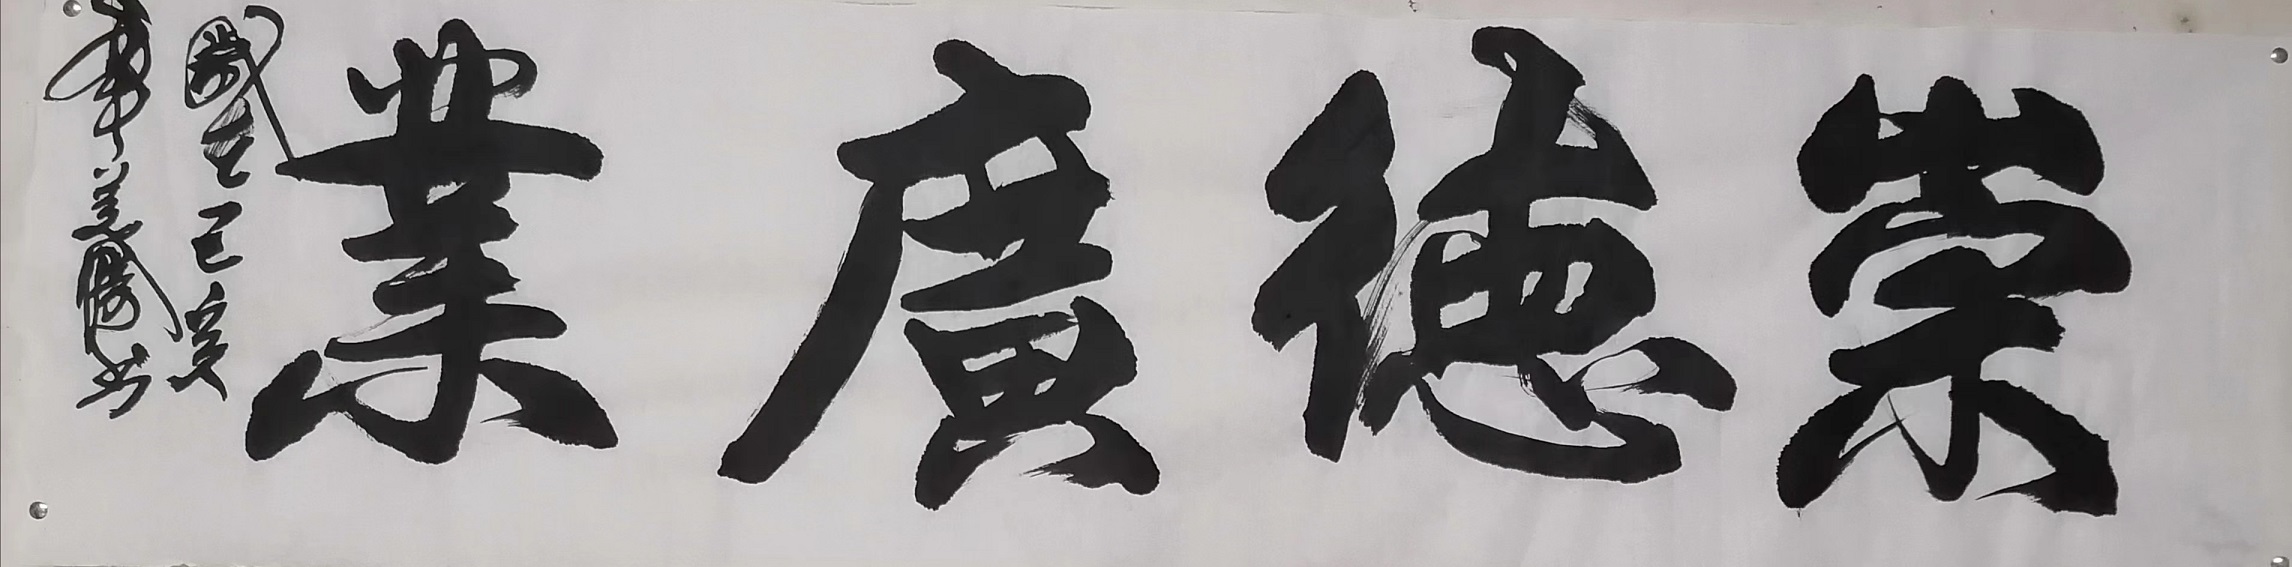 崇德廣業
歲在己亥
書